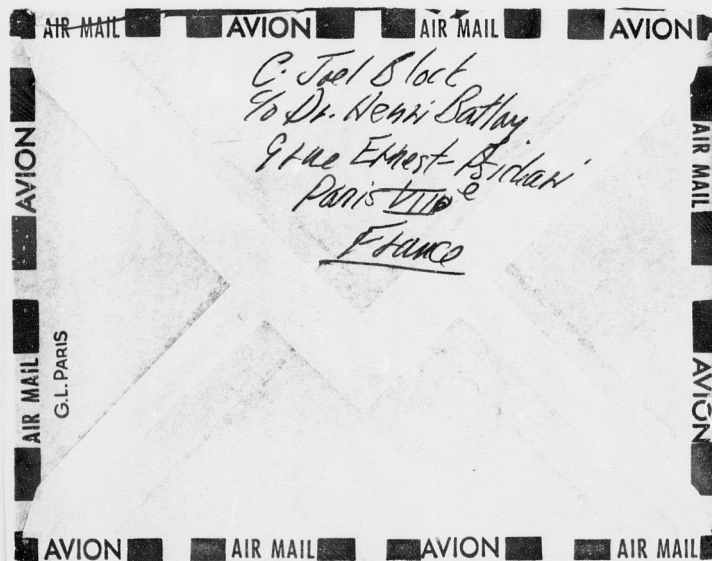 AIR MAIL AVION AIR MAIL AVION
C. Joel Block
c/o Dr. Henri
9 rue Ernest
Paris VIIe
France
AVION
AIR MAIL
G.L. PARIS
AIR MAIL
AVION
AVION AIR MAIL AVION AIR MAIL